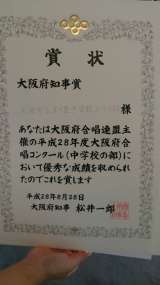 賞状
大阪府知事賞
様
あなたは大阪府合唱連盟主
催の平成28年度大阪府合
唱コンクール(中学校の部)に
おいて優秀な成績を収められ
たのでこれを賞します
平成28年8月28日
大阪府知事 松井一郎